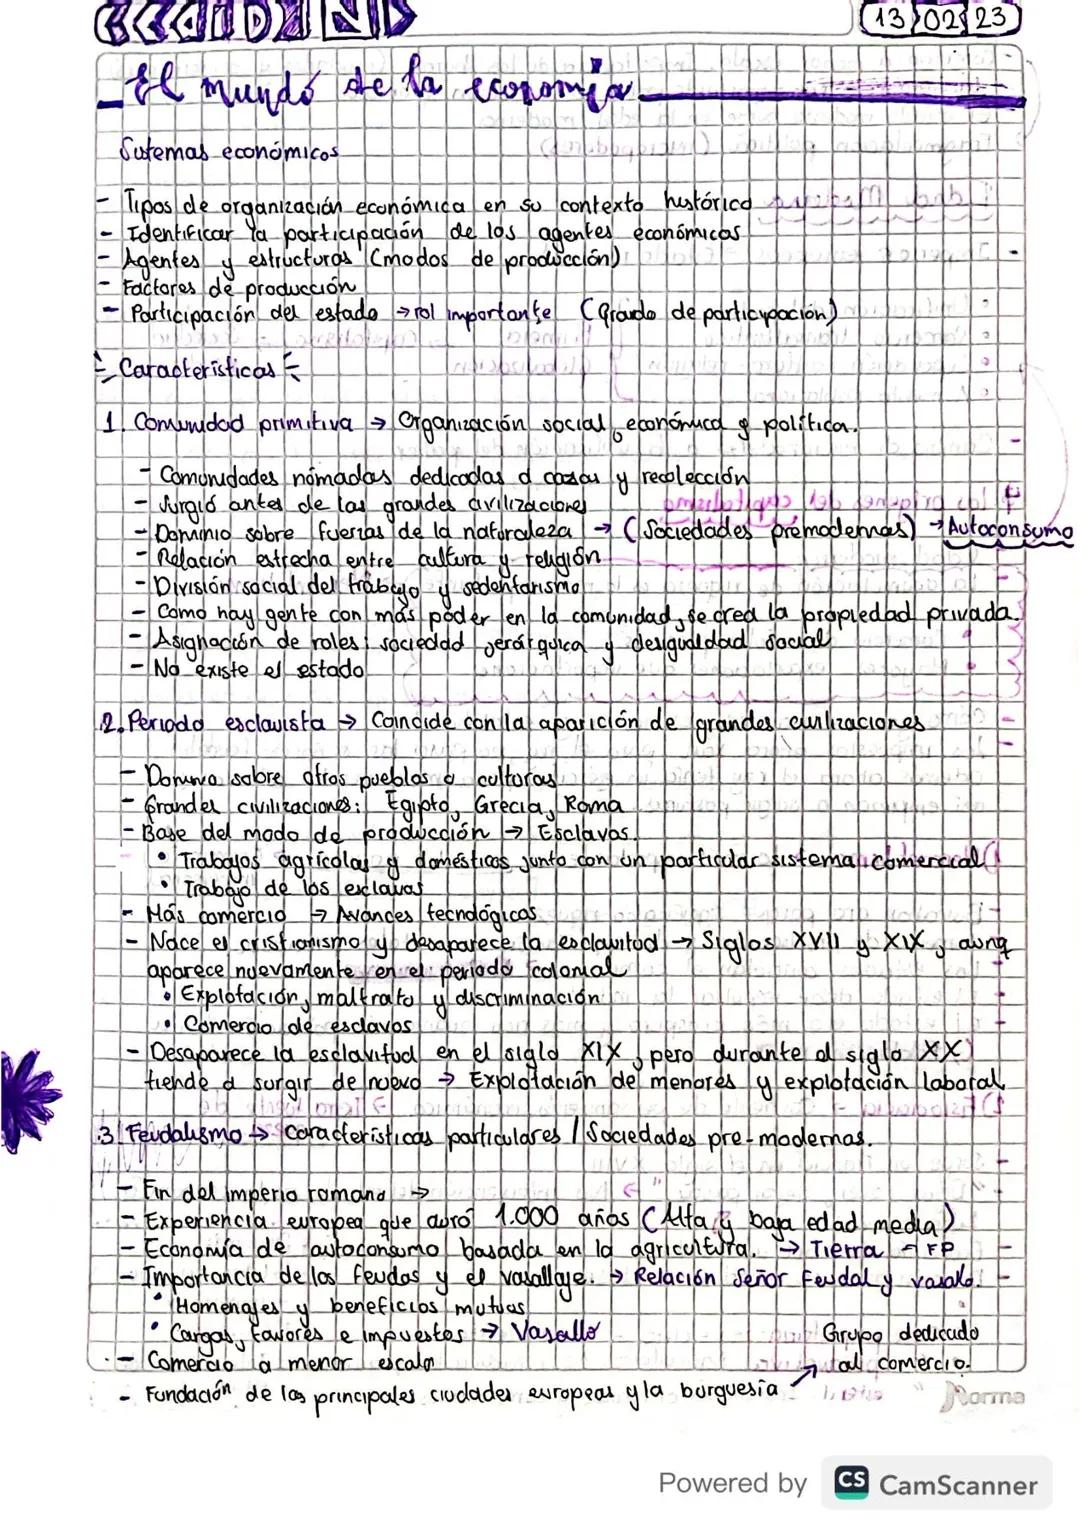 13 02 23
El mundo de la economía
Sistemas económicos
- Tipos de organización económica en su contexto histórico
- Identificar la participación de los agentes económicos
- Agentes y estructuras (modos de producción)
- Factores de producción
- Participación del estado → rol importante (Grado de participación)
Características
1. Comunidad primitiva → Organización social, económica y política.
- Comunidades nómadas dedicadas a cazar y recolección
- Surgió antes de las grandes civilizaciones
- Dominio sobre fuerzas de la naturaleza → (Sociedades premodernas) → Autoconsumo
- Relación estrecha entre cultura y religión
- División social del trabajo y sedentarismo
- Como hay gente con más poder en la comunidad, se crea la propiedad privada.
- Asignación de roles; sociedad jerárquica y desigualdad social
- No existe el estado
2. Periodo esclavista → Coincide con la aparición de grandes civilizaciones
- Dominio sobre otros pueblos o culturas
- Grandes civilizaciones: Egipto, Grecia, Roma
- Base del modo de producción → Esclavos.
• Trabajos agrícolas y domésticos junto con un particular sistema comercial
• Trabajo de los esclavos
- Más comercio → Avances tecnológicos
- Nace el cristianismo y desaparece la esclavitud → Siglos XVII y XIX, aunq
aparece nuevamente en el periodo colonial
• Explotación, maltrato y discriminación
• Comercio de esclavos
- Desaparece la esclavitud en el siglo XIX, pero durante el siglo XX
tiende a surgir de nuevo → Explotación de menores y explotación laboral
3. Feudalismo → Características particulares / Sociedades pre-modernas.
- Fin del imperio romano →
- Experiencia europea que duró 1.000 años (Alta y baja edad media)
- Economía de autoconsumo basada en la agricultura. → Tierra → FP
- Importancia de los feudos y el vasallaje. → Relación Señor Feudal y vasallo.
• Homenajes y beneficios mutuos
• Cargas, favores e impuestos → Vasallo
- Comercio a menor escala
- Fundación de las principales ciudades europeas y la burguesía ↗ Grupo dedicado
al comercio.
Norma
Powered by CS CamScanner